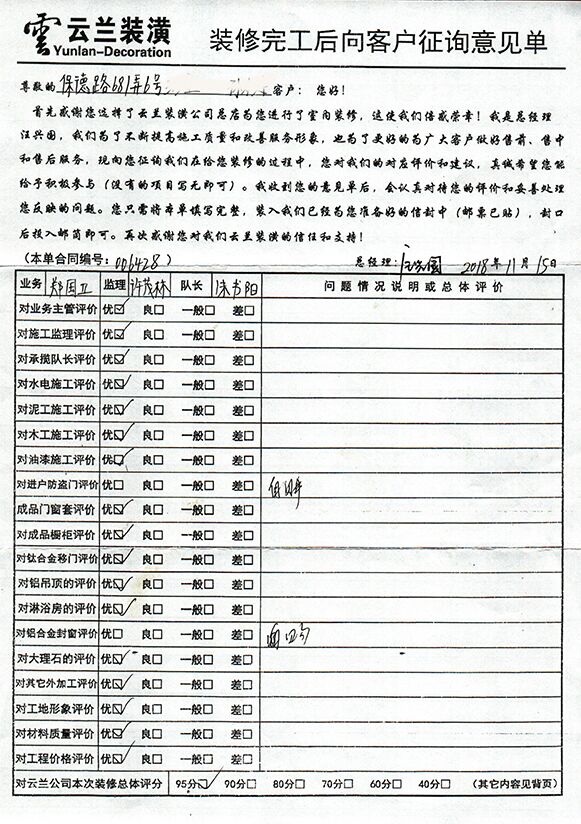 雲 云兰装潢
Yunlan-Decoration
装修完工后向客户征询意见单
尊敬的 保德路681弄6号 客户： 您好！
首先感谢您选择了云兰装潢公司总店为您进行了室内装修，这使我们倍感荣幸！我是总经理
汪兴国，我们为了不断提高施工质量和改善服务形象，也为了更好的为广大客户做好售前、售中
和售后服务，现向您征询我们在给您装修的过程中，您对我们的对应评价和建议，真诚希望您能
给予积极参与（没有的项目写无即可）。我收到您的意见单后，会认真对待您的评价和妥善处理
您反映的问题。您只需将本单填写完整，装入我们已经为您准备好的信封中（邮票已贴），封口
后投入邮筒即可。再次感谢您对我们云兰装潢的信任和支持！
（本单合同编号：006428 ） 总经理： 2018年11月15日
业务 郑国卫 监理 许茂林 队长 阳 问题情况说明或总体评价
对业务主管评价 优☑ 良□ 一般□ 差□
对施工监理评价 优☑ 良□ 一般□ 差□
对承揽队长评价 优☑ 良□ 一般□ 差□
对水电施工评价 优☑ 良□ 一般□ 差□
对泥工施工评价 优☑ 良□ 一般□ 差□
对木工施工评价 优☑ 良□ 一般□ 差□
对油漆施工评价 优☑ 良□ 一般□ 差□
对进户防盗门评价 优□ 良□ 一般□ 差□
成品门窗套评价 优☑ 良□ 一般□ 差□
对成品橱柜评价 优☑ 良□ 一般□ 差□
对钛合金移门评价 优☑ 良□ 一般□ 差□
对铝吊顶的评价 优☑ 良□ 一般□ 差□
对淋浴房的评价 优☑ 良□ 一般□ 差□
对铝合金封窗评价 优□ 良□ 一般□ 差□
对大理石的评价 优☑ 良□ 一般□ 差□
对其它外加工评价 优☑ 良□ 一般□ 差□
对工地形象评价 优☑ 良□ 一般□ 差□
对材料质量评价 优☑ 良□ 一般□ 差□
对工程价格评价 优☑ 良□ 一般□ 差□
对云兰公司本次装修总体评分 95分☑ 90分□ 80分□ 70分□ 60分□ 40分□ （其它内容见背页）